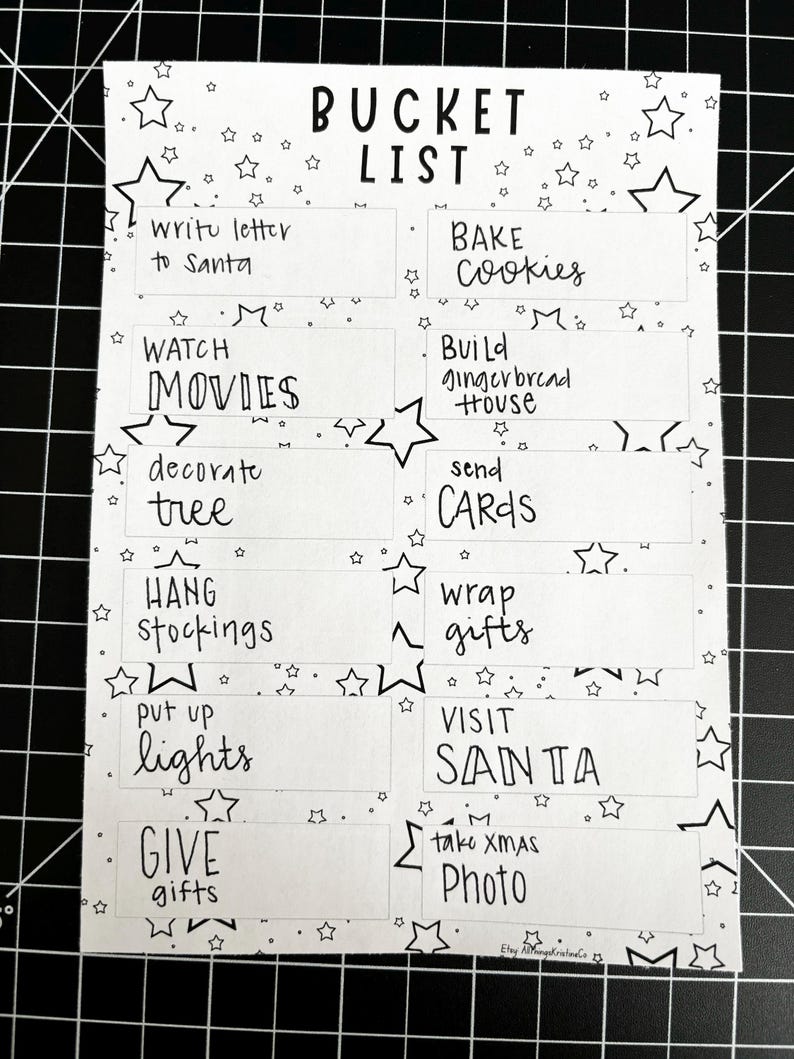 BUCKET
LIST
write letter
to Santa
BAKE
cookies
WATCH
MOVIES
BUiLd
gingerbread
House
decorate
tree
send
CARds
HANG
stockings
wrap
gifts
put up
lights
VISIT
SANTA
GIVE
gifts
take XMAS
Photo
Etsy: AllThingsKristineCo